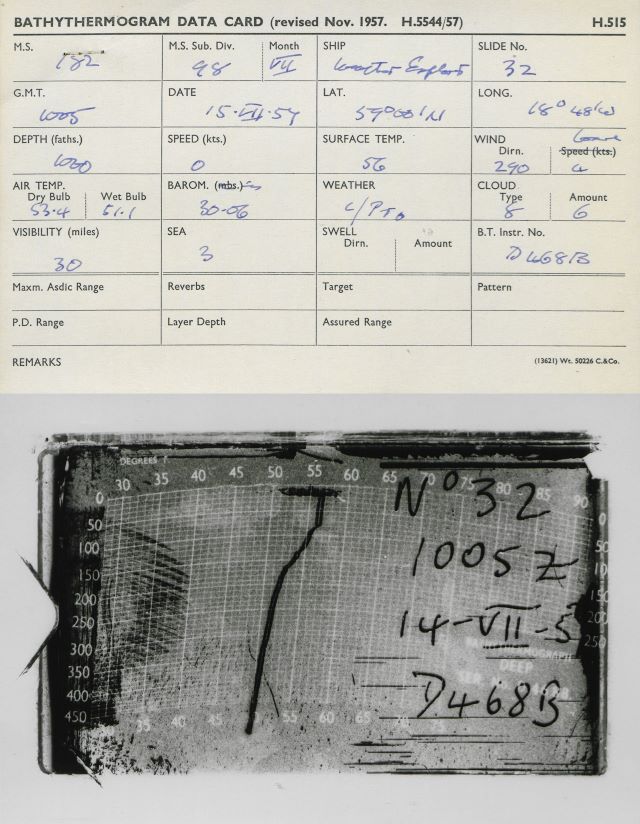 BATHYTHERMOGRAM DATA CARD (revised Nov. 1957. H.5544/57) H.515
M.S. M.S. Sub. Div. Month SHIP SLIDE No.
182 98 VII 32
G.M.T. DATE LAT. LONG.
1005 15·VII·57 59°00'N 18° 48'W
DEPTH (faths.) SPEED (kts.) SURFACE TEMP. WIND
Dirn. Speed (kts.)
1000 0 56 290 4
AIR TEMP. BAROM. (mbs.) WEATHER CLOUD
Dry Bulb Wet Bulb Type Amount
53.4 51.1 30.06 8 6
VISIBILITY (miles) SEA SWELL B.T. Instr. No.
Dirn. Amount
30 3 D468B
Maxm. Asdic Range Reverbs Target Pattern
P.D. Range Layer Depth Assured Range
REMARKS (13621) Wt. 50226 C.&Co.
DEGREES F
30 35 40 45 50 55 60 65 70 75 80 85 90
0 0
50 50
100
150
200
250 250
300
350
400
450
35 40 45 55 60 65
No 32
1005 Z
14-VII-5
DEEP
D468B